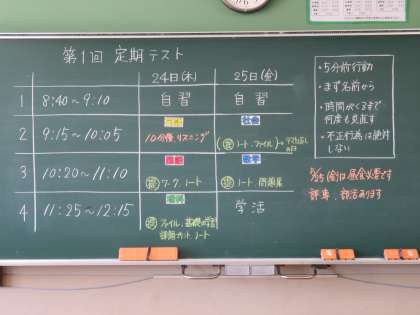 第1回 定期テスト
24日(木) 25日(金)
1 8:40～9:10 自習 自習
2 9:15～10:05 社会
10分後 リスニング
ノート、ファイル
3 10:20～11:10 国語 数学
提 ワーク、ノート 提 ノート 問題集
4 11:25～12:15 理科 学活
提 ファイル、基礎の学習
ノート
・5分前行動
・まず名前から
・時間がくるまで
何度も見直す
・不正行為は絶対
しない
5/25(金)は昼食必要です
部活あります